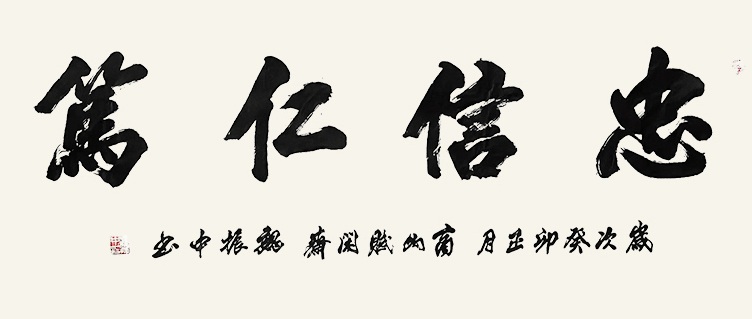 忠信仁篤
歲次癸卯正月 商山賦閑齋 魏振中书